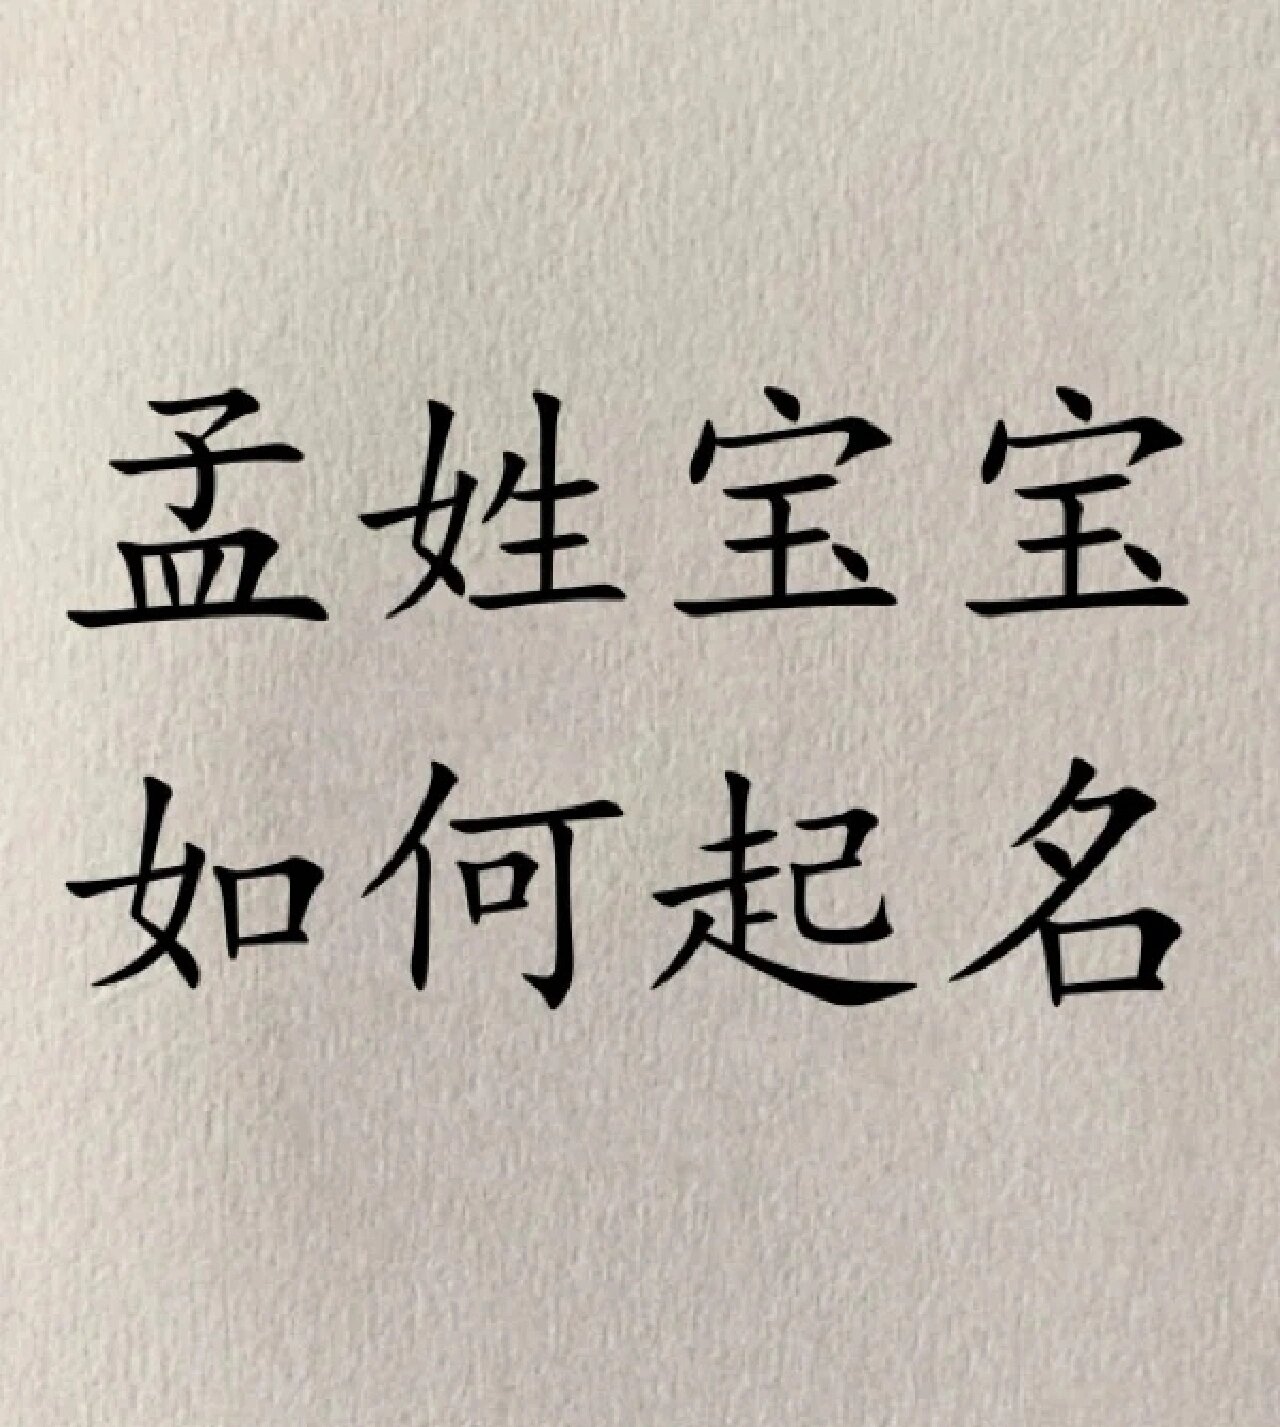 孟姓宝宝
如何起名